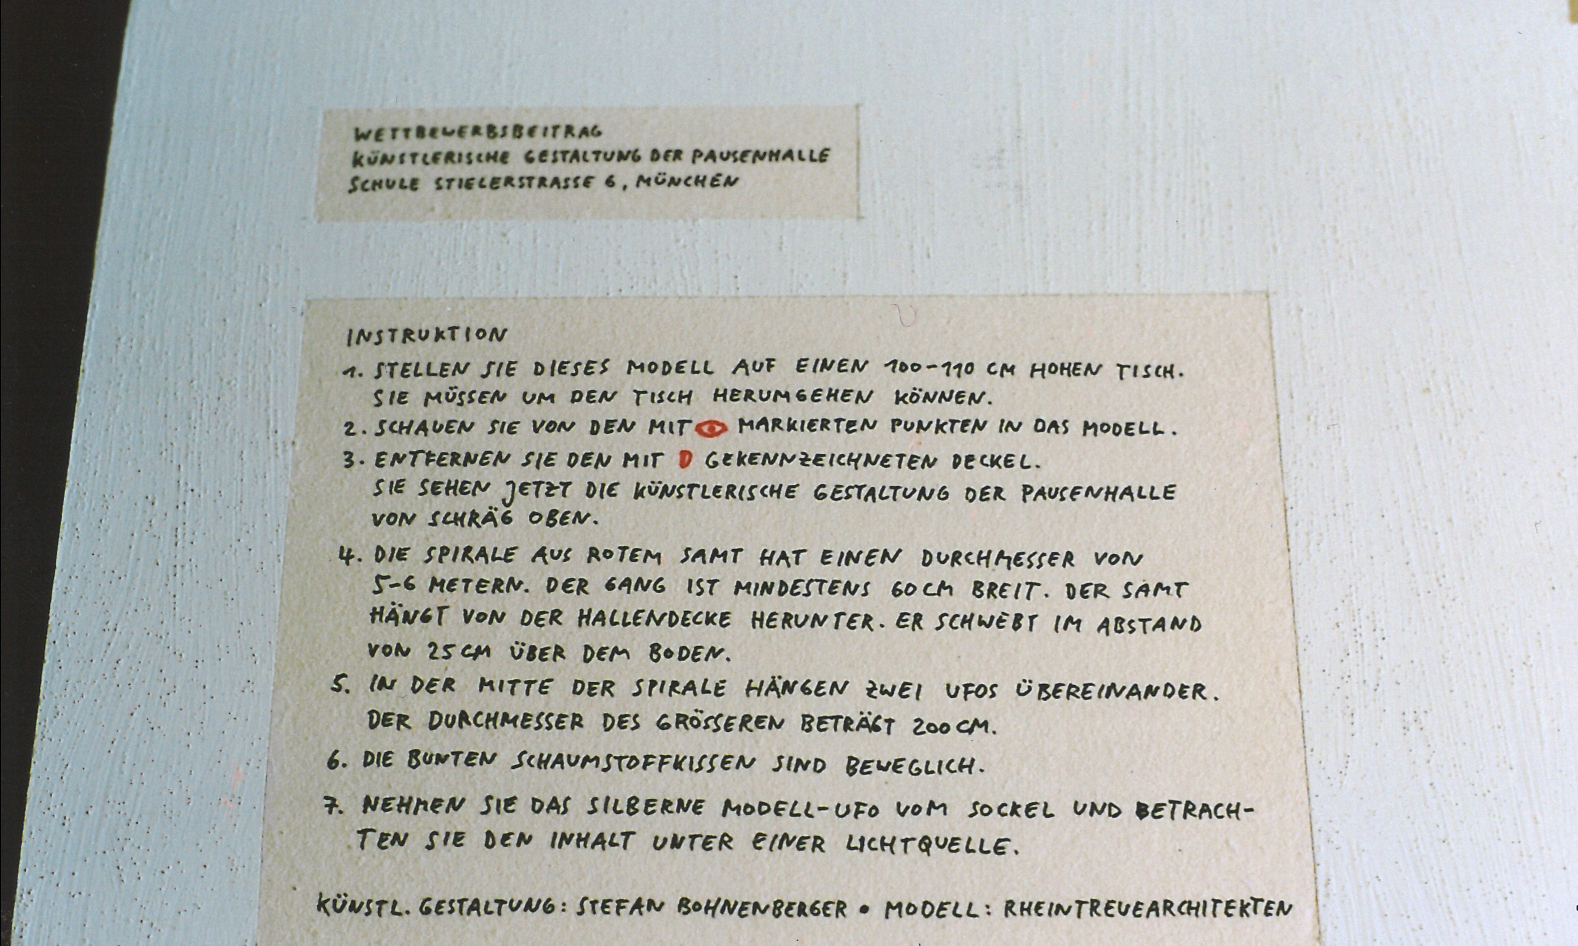 WETTBEWERBSBEITRAG
KÜNSTLERISCHE GESTALTUNG DER PAUSENHALLE
SCHULE STIELERSTRASSE 6, MÜNCHEN
INSTRUKTION
1. STELLEN SIE DIESES MODELL AUF EINEN 100-110 CM HOHEN TISCH.
SIE MÜSSEN UM DEN TISCH HERUMGEHEN KÖNNEN.
2. SCHAUEN SIE VON DEN MIT MARKIERTEN PUNKTEN IN DAS MODELL.
3. ENTFERNEN SIE DEN MIT D GEKENNZEICHNETEN DECKEL.
SIE SEHEN JETZT DIE KÜNSTLERISCHE GESTALTUNG DER PAUSENHALLE
VON SCHRÄG OBEN.
4. DIE SPIRALE AUS ROTEM SAMT HAT EINEN DURCHMESSER VON
5-6 METERN. DER GANG IST MINDESTENS 60 CM BREIT. DER SAMT
HÄNGT VON DER HALLENDECKE HERUNTER. ER SCHWEBT IM ABSTAND
VON 25 CM ÜBER DEM BODEN.
5. IN DER MITTE DER SPIRALE HÄNGEN ZWEI UFOS ÜBEREINANDER.
DER DURCHMESSER DES GRÖSSEREN BETRÄGT 200 CM.
6. DIE BUNTEN SCHAUMSTOFFKISSEN SIND BEWEGLICH.
7. NEHMEN SIE DAS SILBERNE MODELL-UFO VOM SOCKEL UND BETRACH-
TEN SIE DEN INHALT UNTER EINER LICHTQUELLE.
KÜNSTL. GESTALTUNG: STEFAN BOHNENBERGER • MODELL: RHEINTREUEARCHITEKTEN